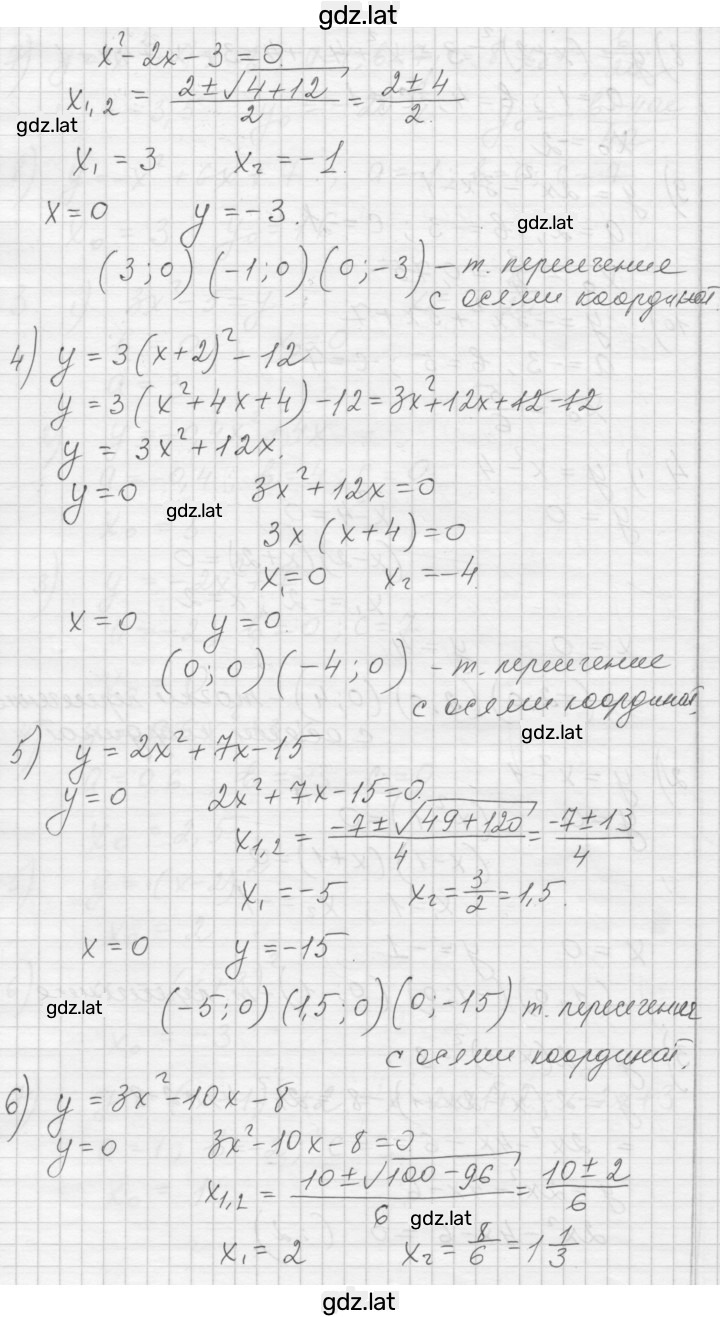 gdz.lat
x² - 2x - 3 = 0.
x₁,₂ = (2 ± √(4+12))/2 = (2 ± 4)/2.
gdz.lat
x₁ = 3 x₂ = -1.
x = 0 y = -3.
gdz.lat
(3; 0) (-1; 0) (0; -3) - т. пересечение
с осями координат
4) y = 3(x+2)² - 12
y = 3(x² + 4x + 4) - 12 = 3x² + 12x + 12 - 12
y = 3x² + 12x.
y = 0 3x² + 12x = 0
gdz.lat
3x(x+4) = 0
x₁ = 0 x₂ = -4.
x = 0 y = 0.
(0; 0) (-4; 0) - т. пересечение
с осями координат.
gdz.lat
5) y = 2x² + 7x - 15
y = 0 2x² + 7x - 15 = 0.
x₁,₂ = (-7 ± √(49+120))/4 = (-7 ± 13)/4
x₁ = -5 x₂ = 3/2 = 1,5.
x = 0 y = -15.
gdz.lat
(-5; 0) (1,5; 0) (0; -15) т. пересечения
с осями координат.
6) y = 3x² - 10x - 8
y = 0 3x² - 10x - 8 = 0
x₁,₂ = (10 ± √(100 - 96))/6 = (10 ± 2)/6
gdz.lat
x₁ = 2 x₂ = 8/6 = 1 1/3
gdz.lat